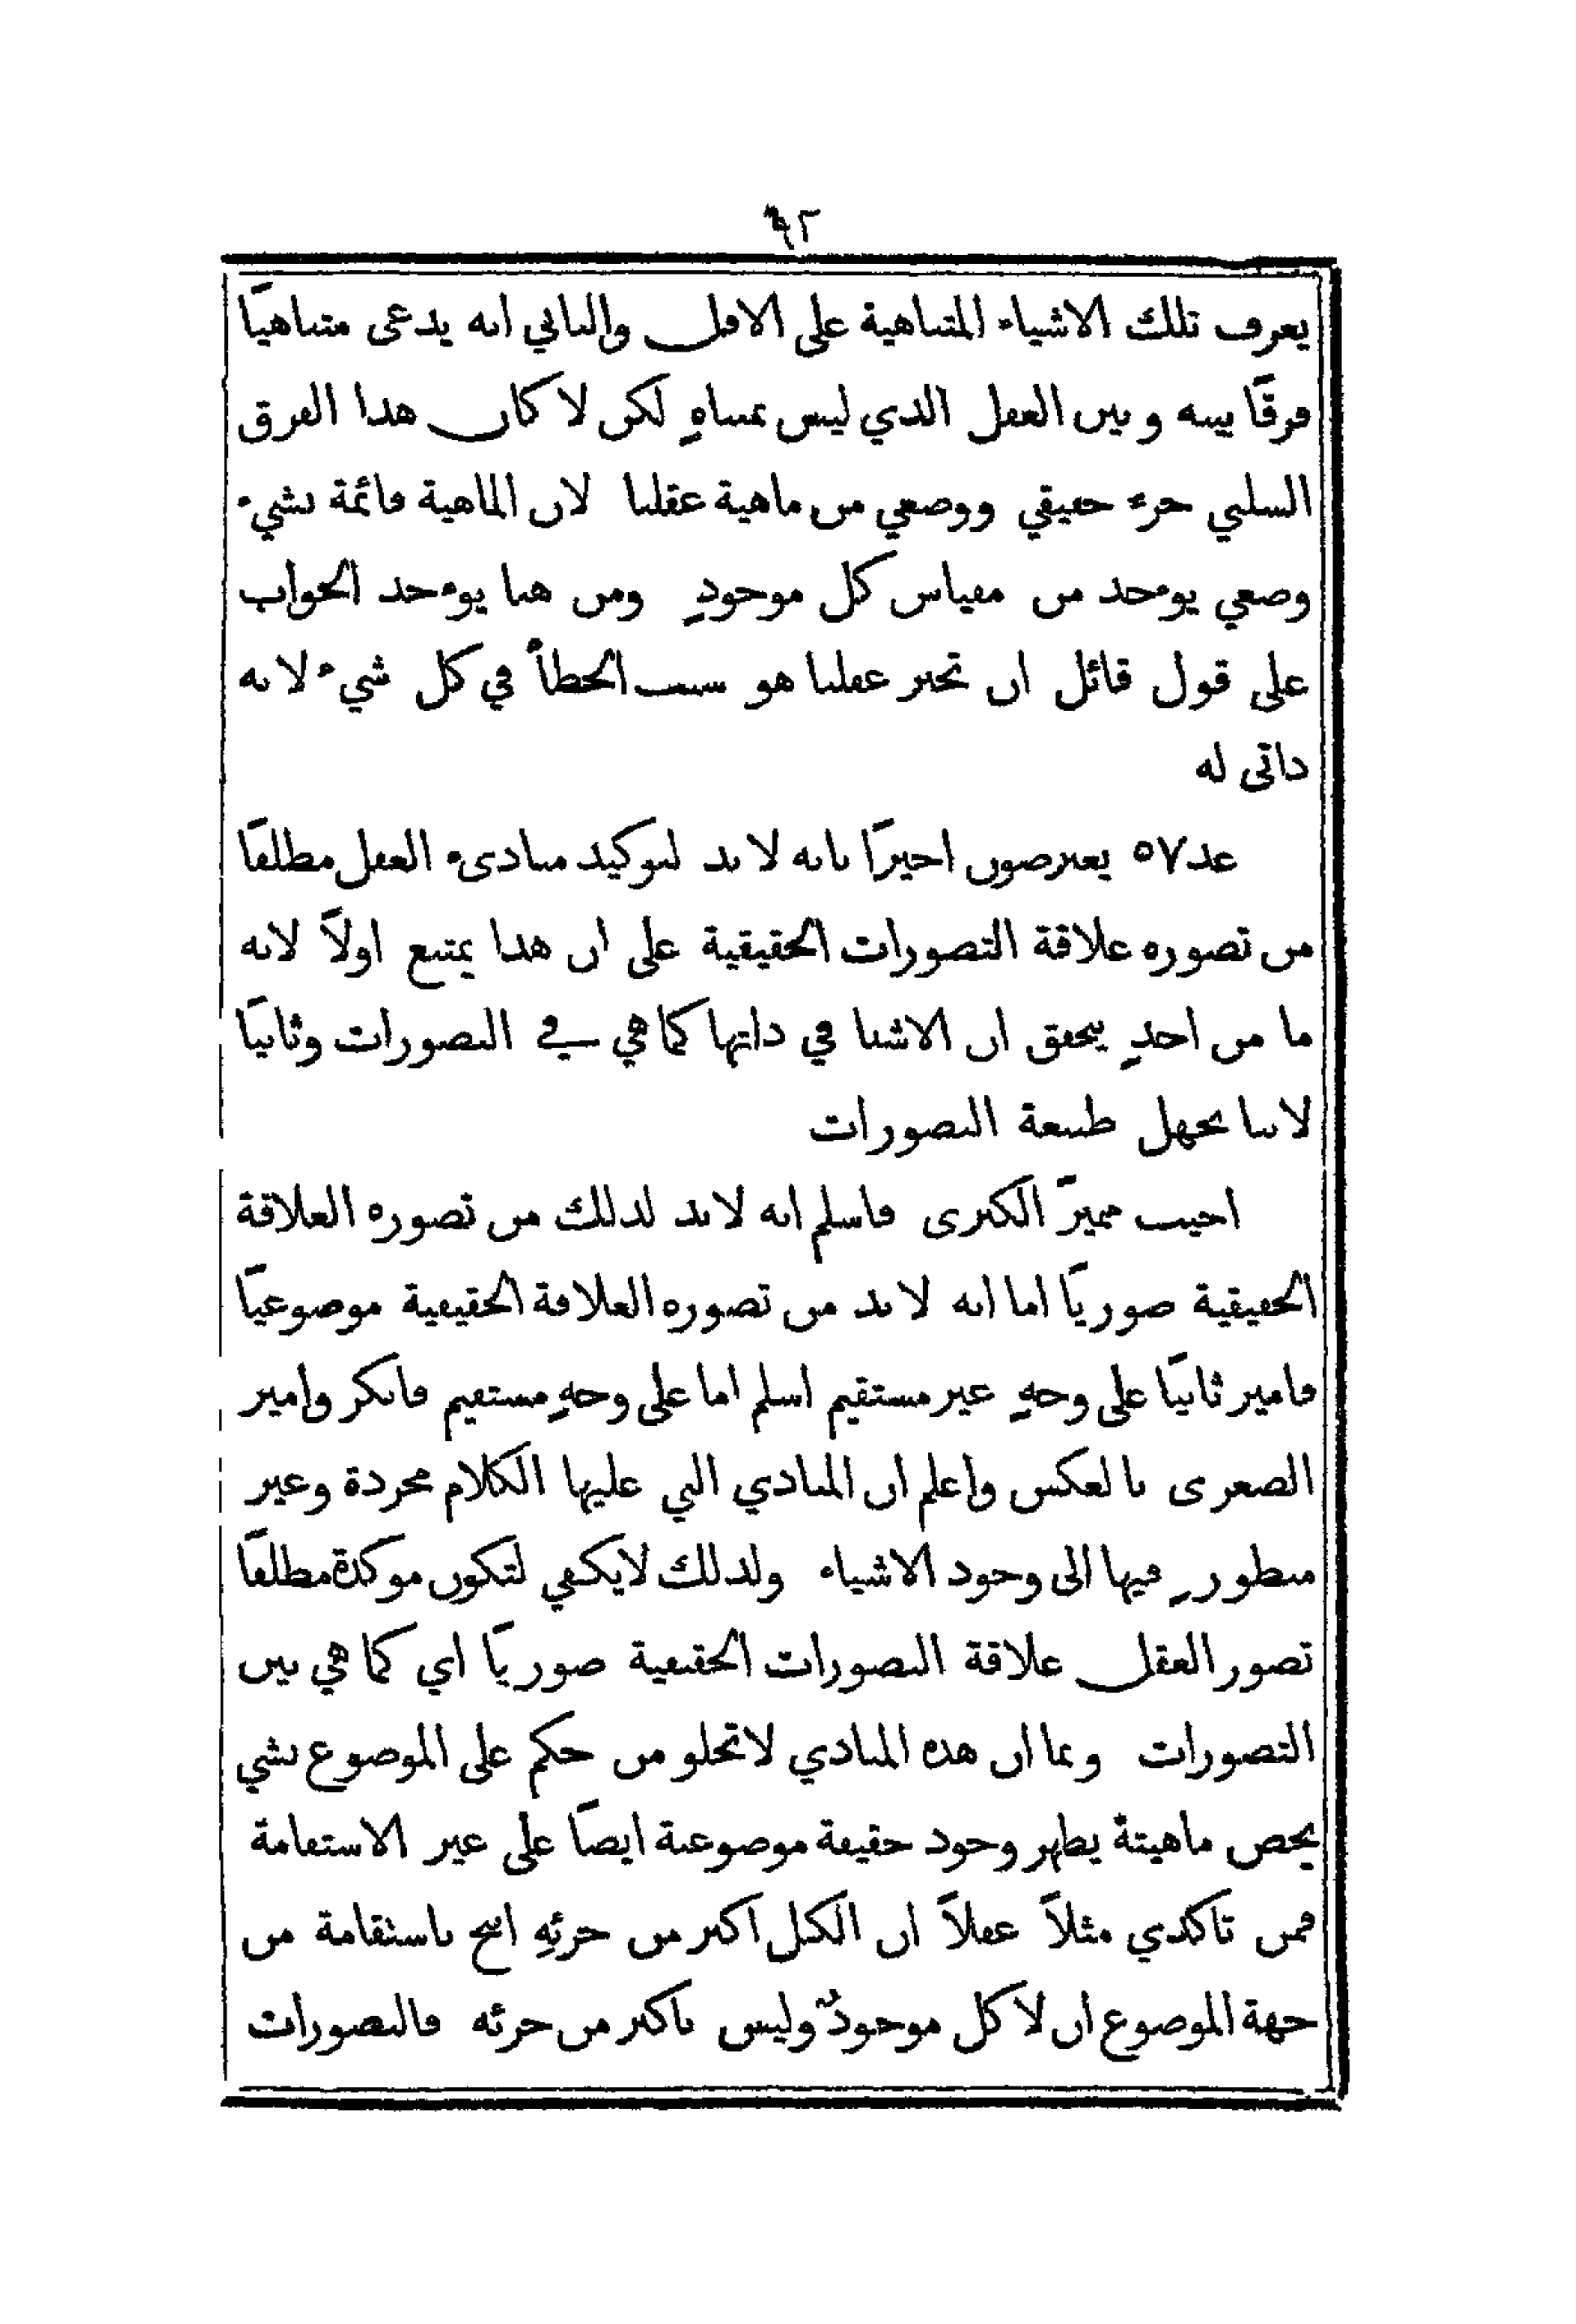 ٩٢
يعرف تلك الاشياء المتناهية على الاقل والثاني انه يدعى متناهيًا
فرقًا بينه وبين العقل الذي ليس بمتناهٍ لكن لا كان هذا الفرق
السلبي جزء حقيقي ووضعي من ماهية عقلنا لان الماهية قائمة بشيء
وضعي يوءخذ من مقياس كل موجودٍ ومن هنا يوءخذ الجواب
على قول قائل ان تحير عقلنا هو سبب الخطأ في كل شيء لانه
ذاتى له
عد ٥٧ يعترضون اخيرًا بانه لا بد لتوكيد مبادىء العقل مطلقًا
من تصوره علاقة التصورات الحقيقية على ان هذا يمتنع اولاً لانه
ما من احدٍ يحقق ان الاشيا في ذاتها كما هي في التصورات وثانيًا
لاننا نجهل طبيعة التصورات
اجيب مميزًّ الكبرى فاسلم انه لا بد لذلك من تصوره العلاقة
الحقيقية صوريًا اما انه لا بد من تصوره العلاقة الحقيقية موضوعيًا
فاميز ثانيًا على وجهٍ غير مستقيم اسلم اما على وجهٍ مستقيم فانكر واميز
الصغرى بالعكس واعلم ان المبادي التي عليها الكلام مجردة وغير
منظورٍ فيها الى وجود الاشياء ولذلك لا يكفي لتكون موكدة مطلقًا
تصور العقل علاقة التصورات الحقيقية صوريًا اي كما هي بين
التصورات وبما ان هذه المبادي لا تخلو من حكم على الموضوع بشي
يخص ماهيتهُ يظهر وجود حقيقة موضوعية ايضًا على غير الاستقامة
فمن تاكدي مثلاً عقلاً ان الكل اكبر من جزئهِ انتج باستقامة من
جهة الموضوع ان لا كل موجودٌ وليس باكبر من جزئه فالتصورات